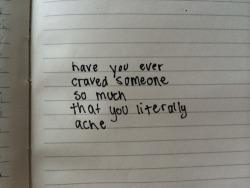 have you ever
craved someone
so much
that you literally
ache